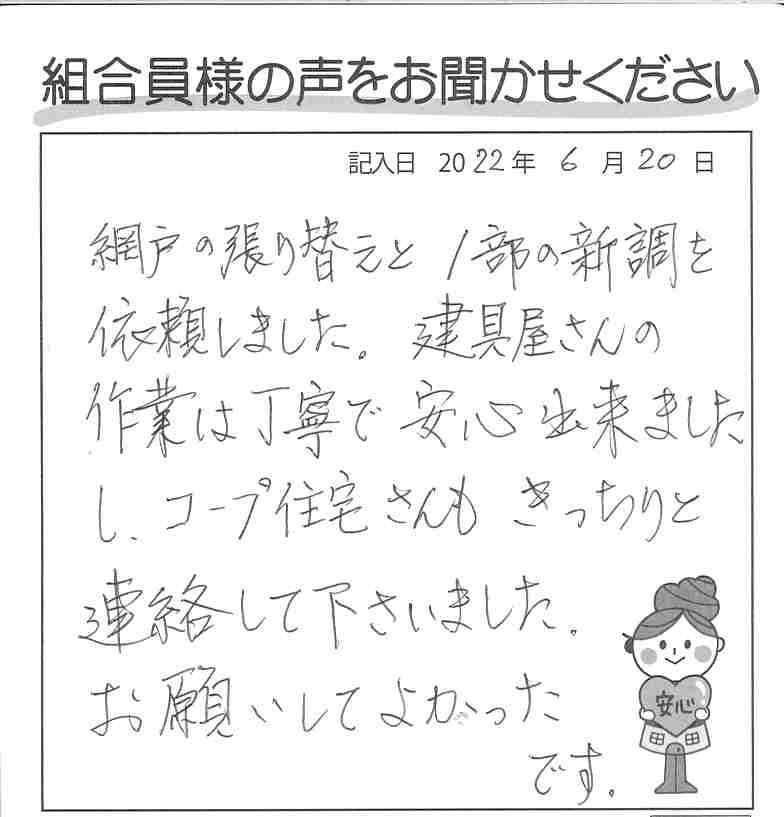 組合員様の声をお聞かせください
記入日 2022年 6月20日
網戸の張り替えと1部の新調を
依頼しました。建具屋さんの
作業は丁寧で安心出来ました
し、コープ住宅さんもきっちりと
連絡して下さいました。
お願いしてよかった
です。
安心